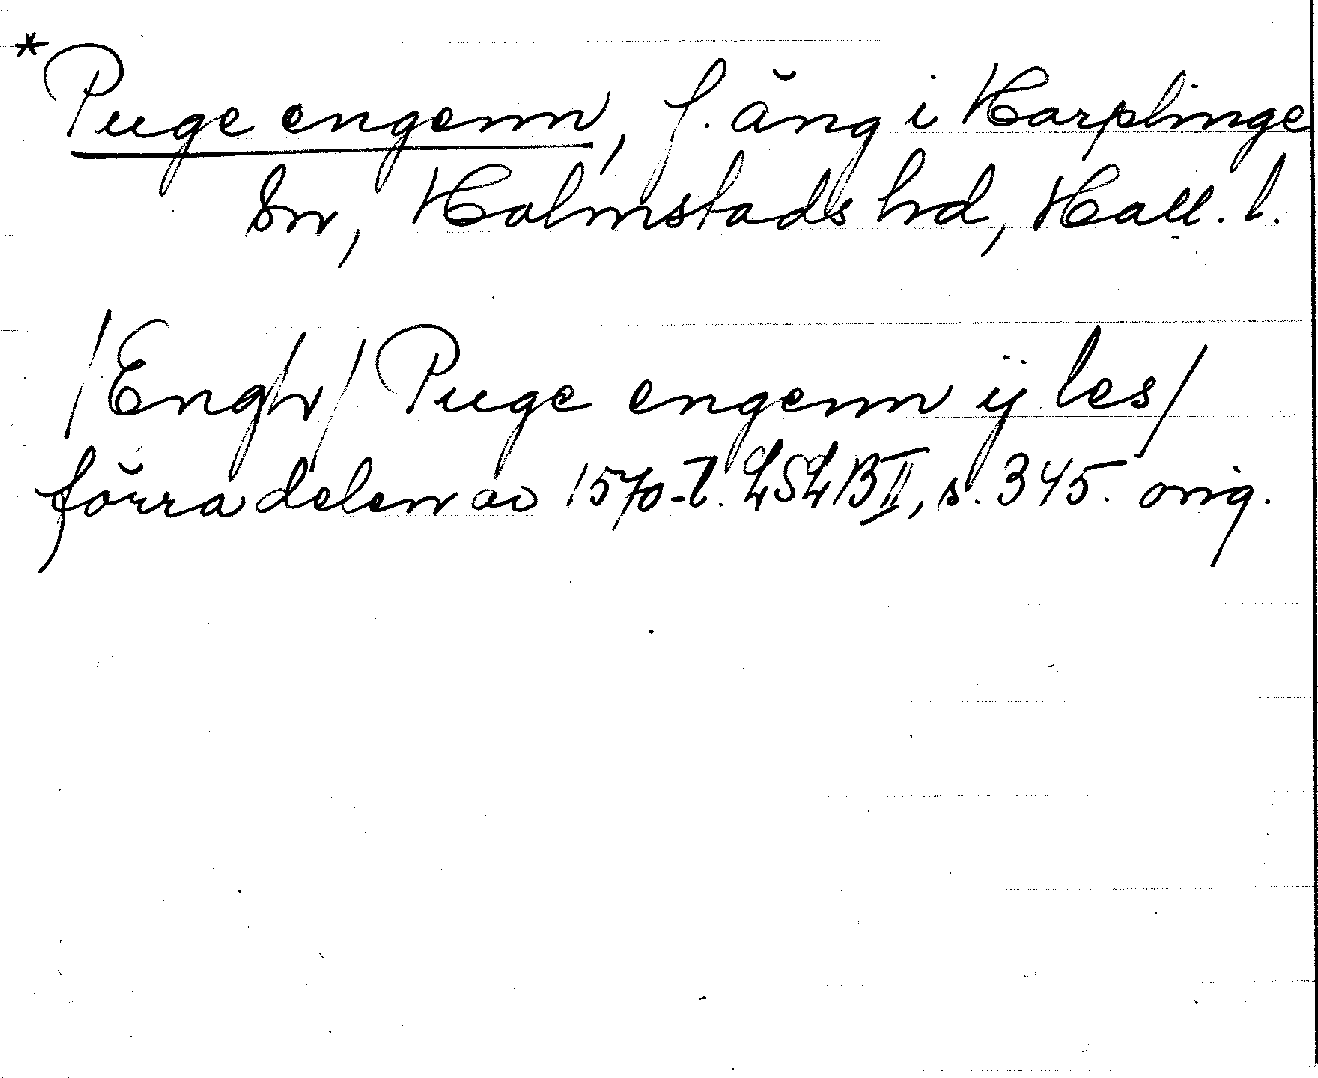 *Puge engenn, f. äng i Harplinge
sn, Halmstads hd, Hall. l.
/Engh/ Puge engenn ij les/
förra delen av 1570-t. LSLB II, s. 345. orig.